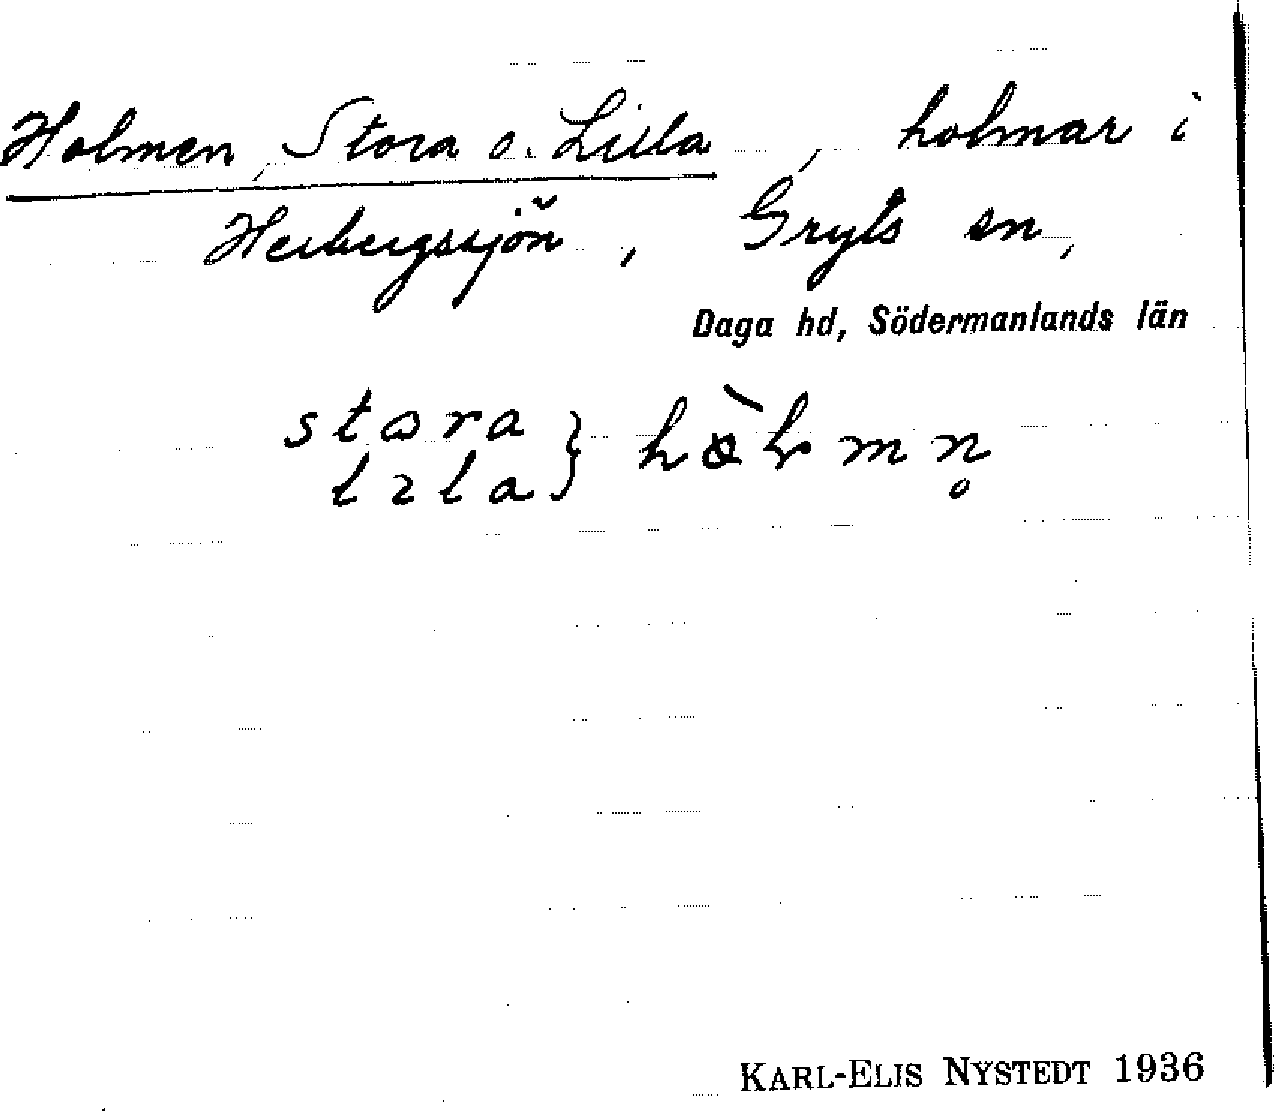 Holmen, Stora o. Lilla, holmar i
Herbergssjön, Gryts sn,
Daga hd, Södermanlands län
stora
lila } hòlmn̥
KARL-ELIS NYSTEDT 1936